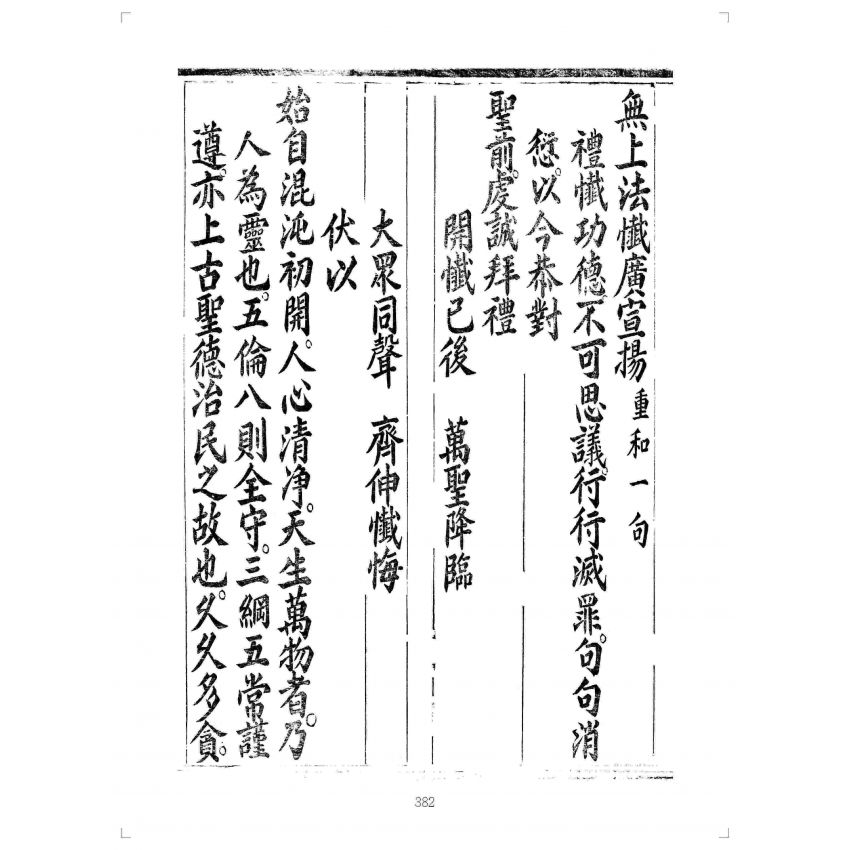 無上法懺廣宣揚 重和一句
禮懺功德。不可思議。行行滅罪。句句消
愆。以今恭對
聖前。虔誠拜禮
開懺已後 萬聖降臨
大眾同聲 齊伸懺悔
伏以
始自混沌初開。人心清净。天生萬物者。乃
人為靈也。五倫八則全守。三綱五常謹
遵。亦上古聖德治民之故也。久久多貪。
382